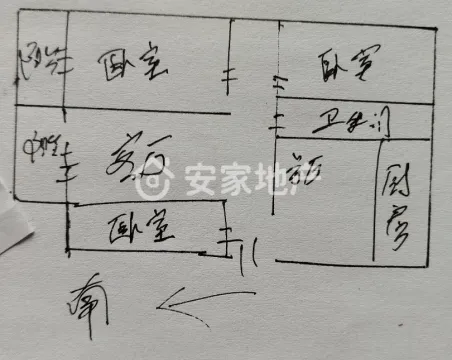 阳台 卧室 卧室
卫生间
阳台 客厅
安家地产
卧室 厨房
南